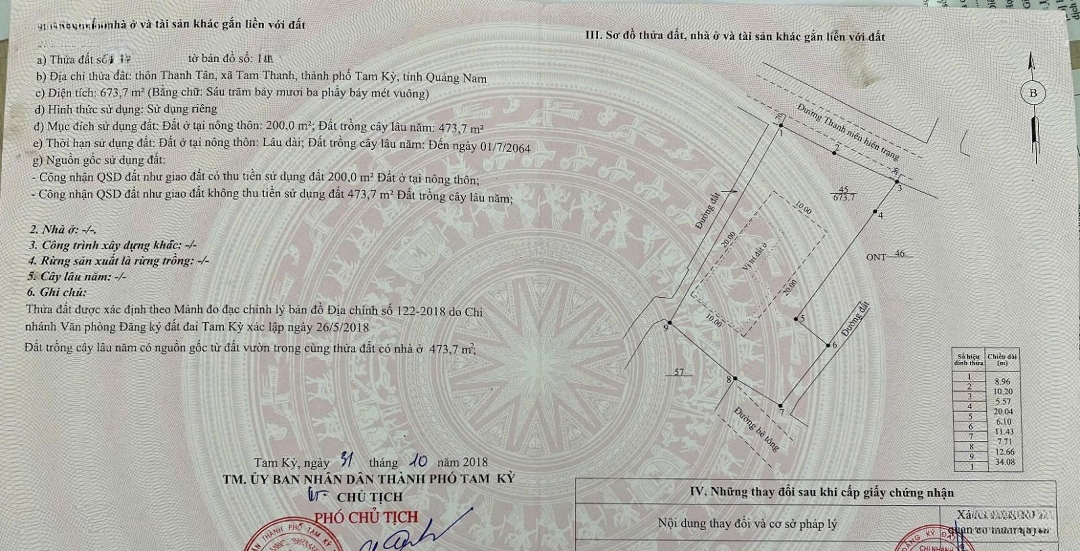 nhà ở và tài sản khác gắn liền với đất
a) Thửa đất số tờ bản đồ số:
b) Địa chỉ thửa đất: thôn Thanh Tân, xã Tam Thanh, thành phố Tam Kỳ, tỉnh Quảng Nam
c) Diện tích: 673,7 m² (Bằng chữ: Sáu trăm bảy mươi ba phẩy bảy mét vuông)
d) Hình thức sử dụng: Sử dụng riêng
đ) Mục đích sử dụng đất: Đất ở tại nông thôn: 200,0 m²; Đất trồng cây lâu năm: 473,7 m²
e) Thời hạn sử dụng đất: Đất ở tại nông thôn: Lâu dài; Đất trồng cây lâu năm: Đến ngày 01/7/2064
g) Nguồn gốc sử dụng đất:
- Công nhận QSD đất như giao đất có thu tiền sử dụng đất 200,0 m² Đất ở tại nông thôn;
- Công nhận QSD đất như giao đất không thu tiền sử dụng đất 473,7 m² Đất trồng cây lâu năm;
2. Nhà ở: -/-.
3. Công trình xây dựng khác: -/-
4. Rừng sản xuất là rừng trồng: -/-
5. Cây lâu năm: -/-
6. Ghi chú:
Thửa đất được xác định theo Mảnh đo đạc chỉnh lý bản đồ Địa chính số 122-2018 do Chi
nhánh Văn phòng Đăng ký đất đai Tam Kỳ xác lập ngày 26/5/2018
Đất trồng cây lâu năm có nguồn gốc từ đất vườn trong cùng thửa đất có nhà ở 473,7 m²;
Tam Kỳ, ngày 31 tháng 10 năm 2018
TM. ỦY BAN NHÂN DÂN THÀNH PHỐ TAM KỲ
KT. CHỦ TỊCH
PHÓ CHỦ TỊCH
III. Sơ đồ thửa đất, nhà ở và tài sản khác gắn liền với đất
B
Đường Thanh niên hiện trạng
1
2
3
4
45
673.7
Đường đất
10.00
20.00
Vị trí đất ở
20.00
10.00
ONT 46
5
6
Đường đất
9
57
8
7
Đường bê tông
Số hiệu đỉnh thửa Chiều dài (m)
1
8.96
2
10.20
3
5.57
4
20.04
5
6.10
6
11.43
7
7.71
8
12.66
9
34.08
1
IV. Những thay đổi sau khi cấp giấy chứng nhận
Nội dung thay đổi và cơ sở pháp lý